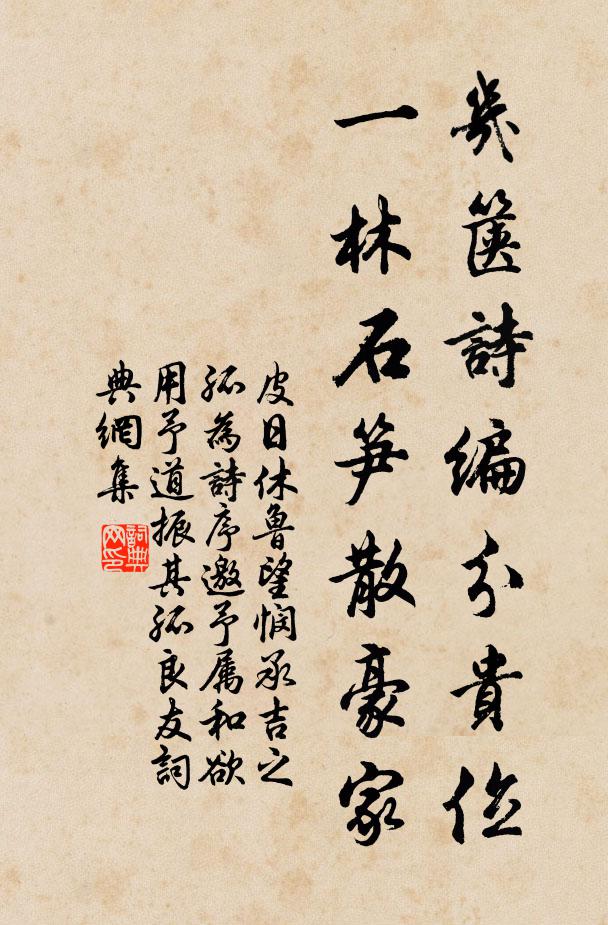 幾篋詩編分貴位
一林石笋散豪家
皮日休魯望憫承吉之
孤為詩序邀予属和欲
用予道振其孤良友詞
典網集
詞典
网印